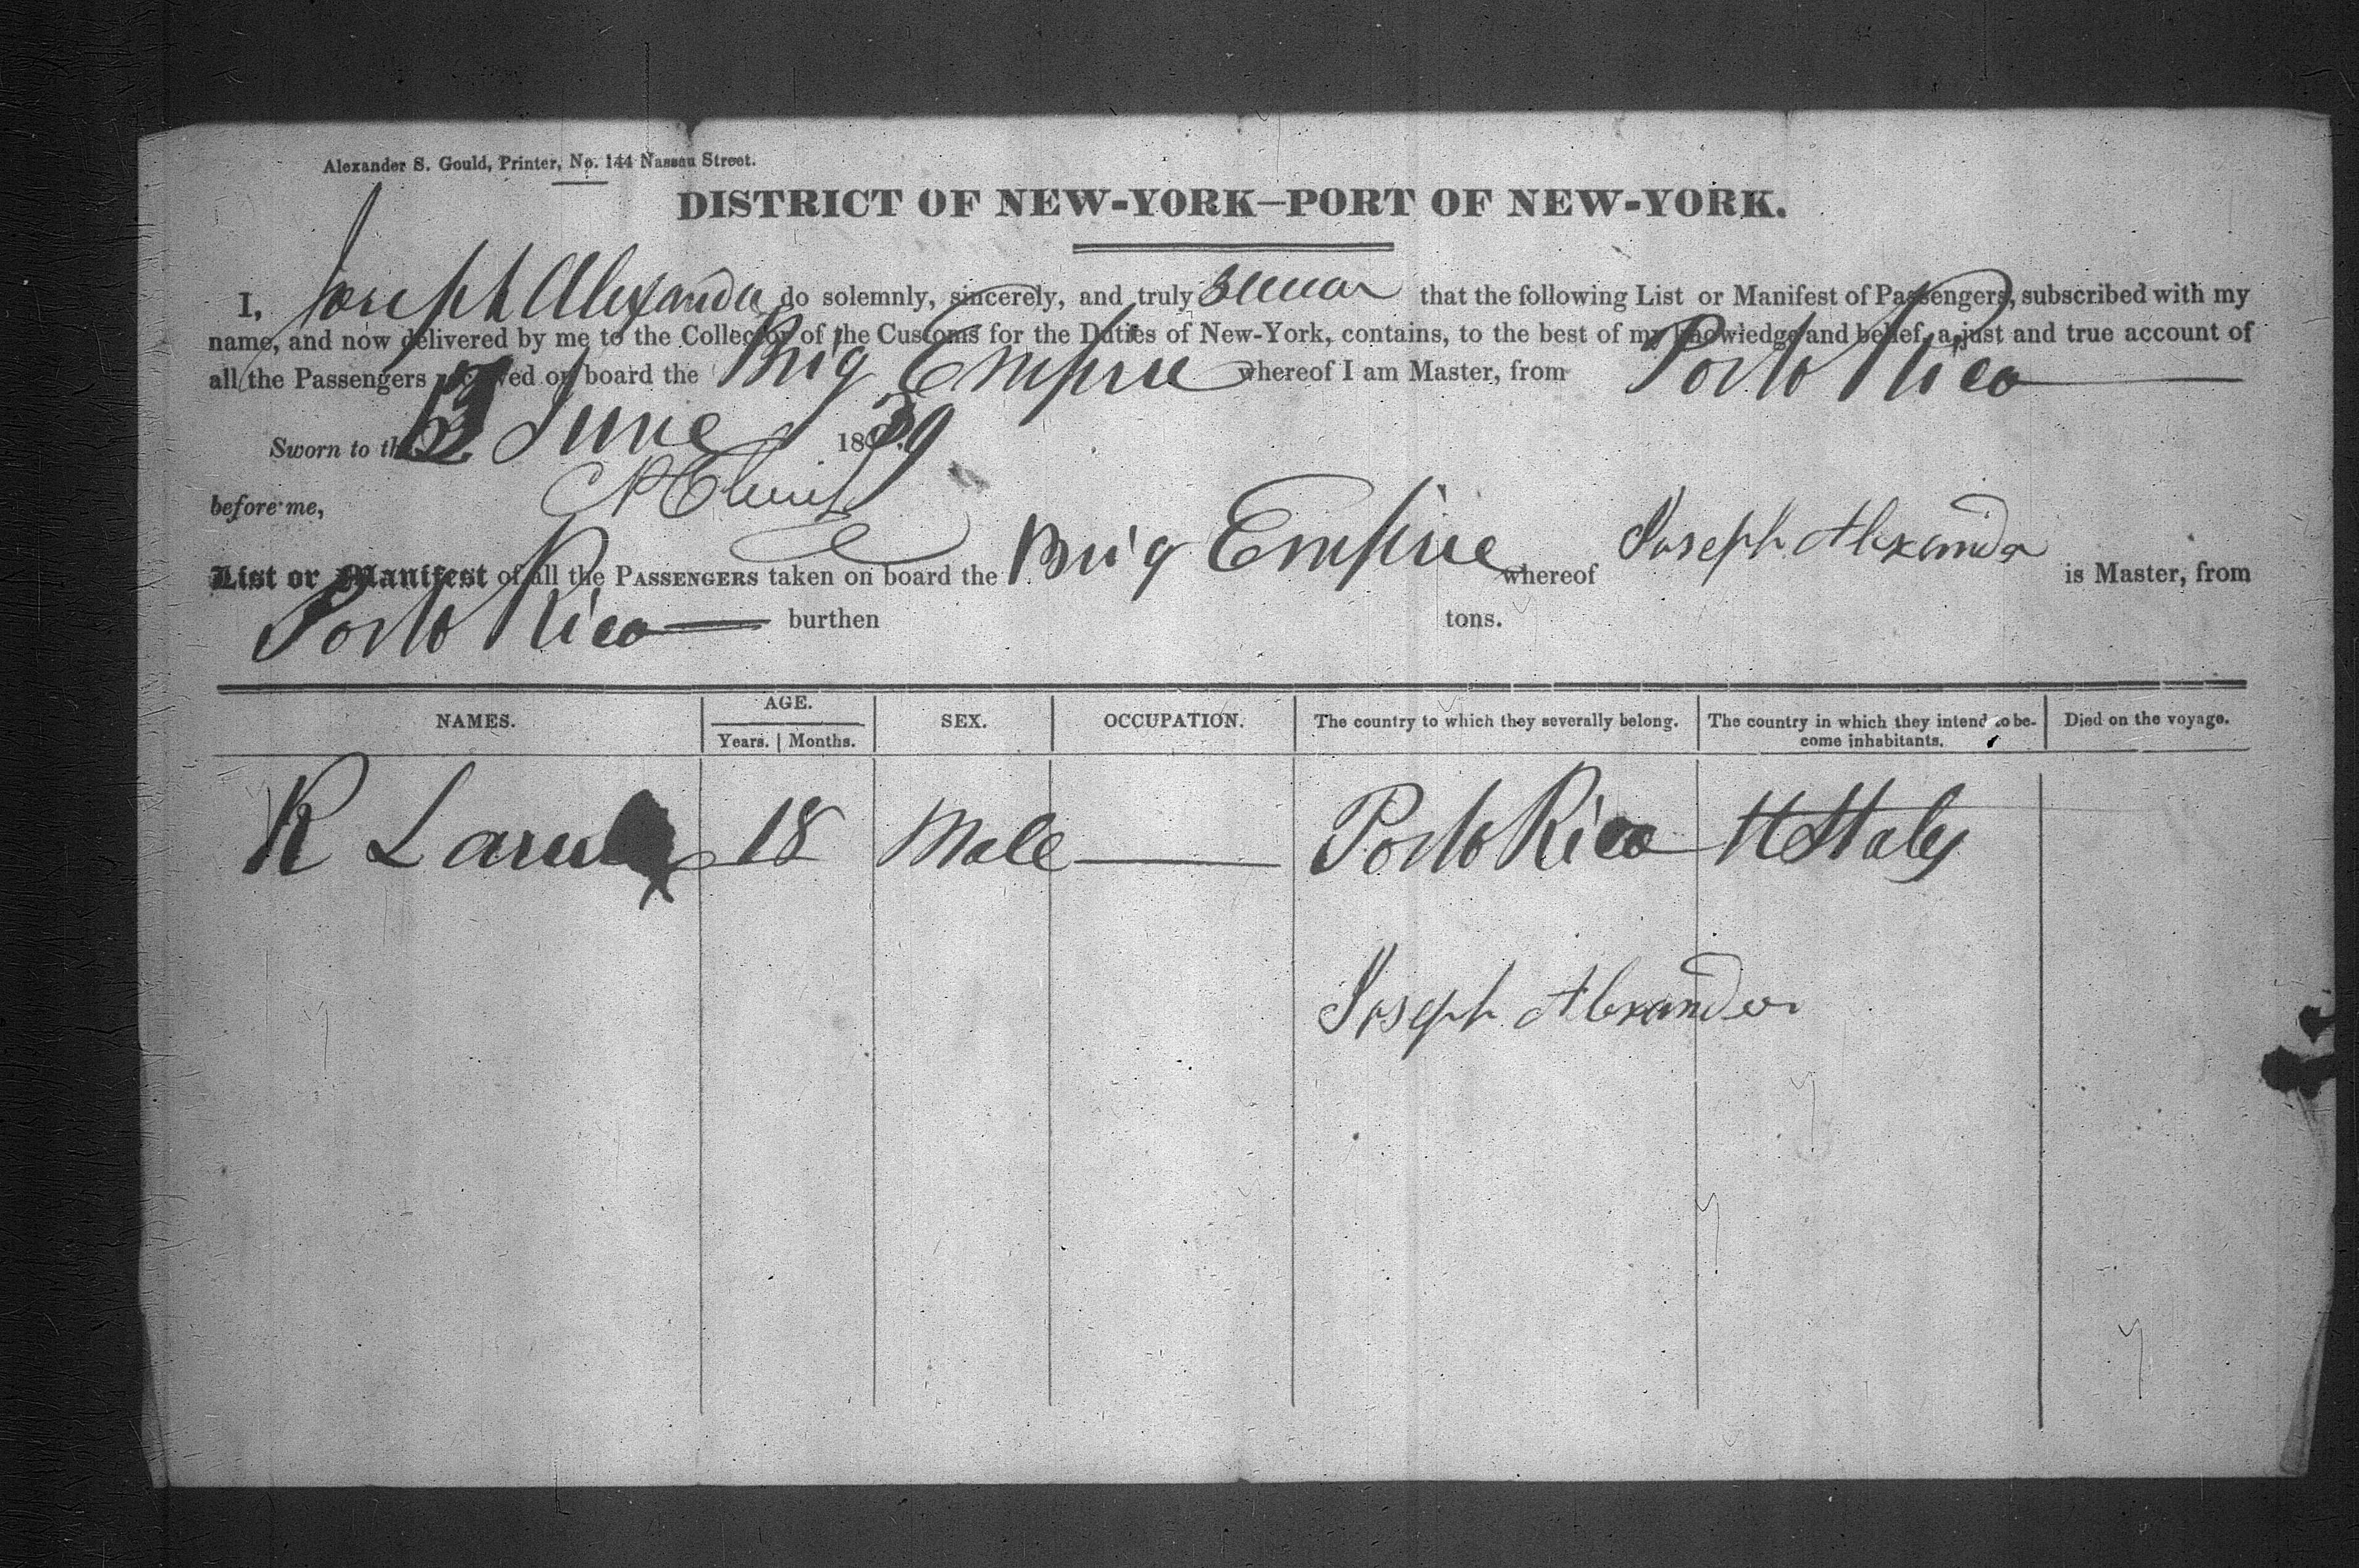 Alexander S. Gould, Printer, No. 144 Nassau Street.
DISTRICT OF NEW-YORK—PORT OF NEW-YORK.
I, Joseph Alexander do solemnly, sincerely, and truly swear that the following List or Manifest of Passengers, subscribed with my
name, and now delivered by me to the Collector of the Customs for the Duties of New-York, contains, to the best of my knowledge and belief, a just and true account of
all the Passengers received on board the Brig Empire whereof I am Master, from Porto Rico
Sworn to the June 1839
before me,
List or Manifest of all the PASSENGERS taken on board the Brig Empire whereof Joseph Alexander is Master, from
Porto Rico burthen tons.
NAMES. AGE. SEX. OCCUPATION. The country to which they severally belong. The country in which they intend to be- Died on the voyage.
Years. Months. come inhabitants.
R 18 Male Porto Rico
Joseph Alexander